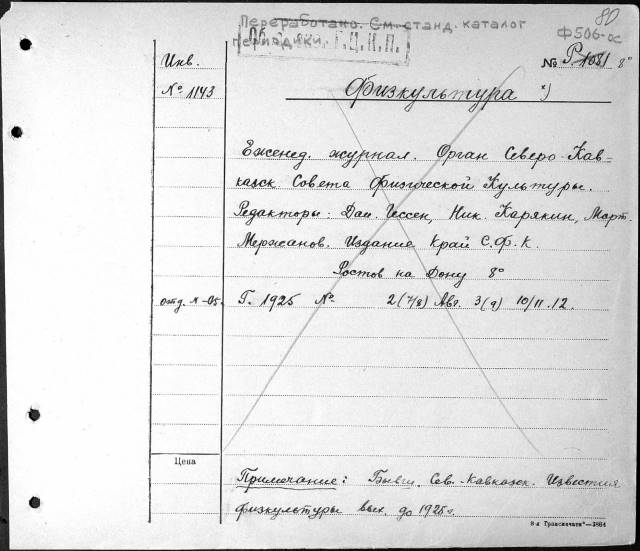 80
Переработано. См. станд. каталог
периодики. Г.Ц.К.П.
Ф506-ос
Инв.
№ Р1081 8°
№ 1143
Физкультура *)
Еженед. журнал. Орган Северо-Кав-
казск. Совета физической Культуры.
Редакторы: Дан. Гессен, Ник. Карякин, Март.
Мержанов. Издание Край С.Ф.К.
Ростов на Дону 8°
отд. М-05. Г. 1925 № 2(7/8) Авг. 3(9) 10/11.12.
Цена
Примечание: Бывш. Сев.-Кавказск. Известия
физкультуры вых. до 1925г.
8-я Транспечати—3864